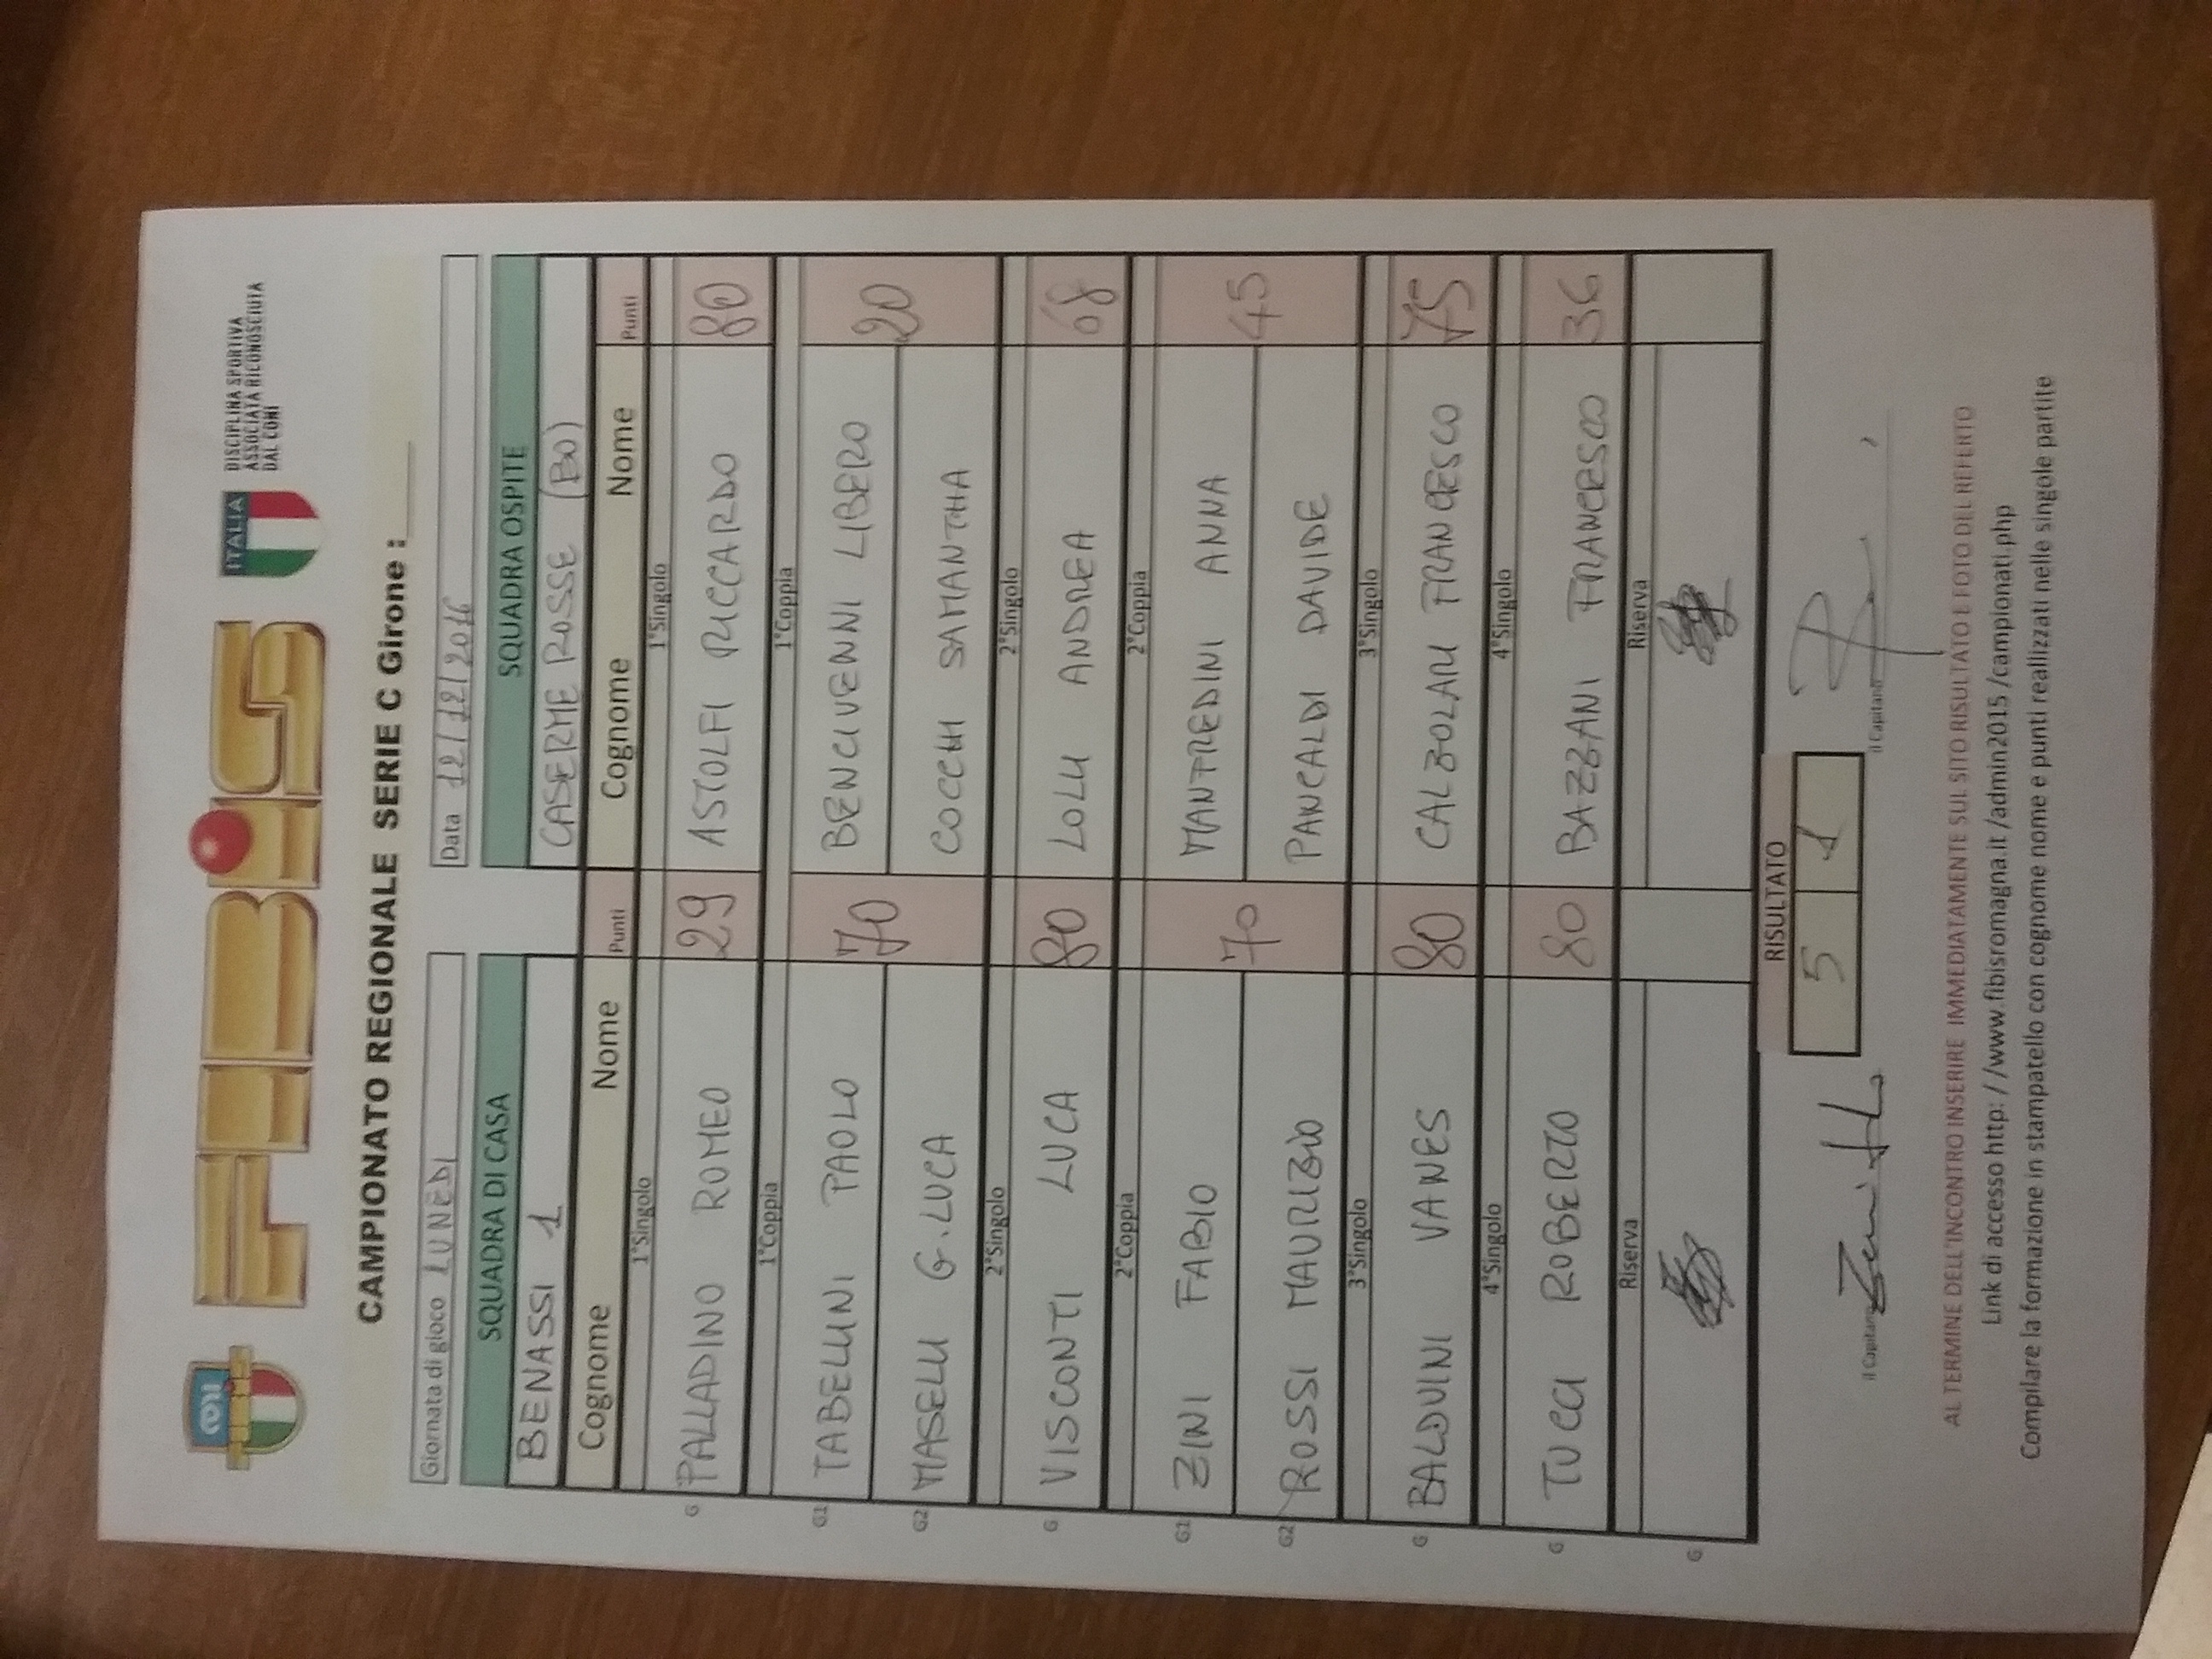 FIBIS
ITALIA
DISCIPLINA SPORTIVA
ASSOCIATA RICONOSCIUTA
DAL CONI
CAMPIONATO REGIONALE SERIE C Girone :
Giornata di gioco LUNEDI Data 12/12/2016
SQUADRA DI CASA SQUADRA OSPITE
BENASSI 1 CASERME ROSSE (BO)
Cognome Nome Punti Cognome Nome Punti
1°Singolo 1°Singolo
G PALLADINO ROMEO 29 ASTOLFI RICCARDO 80
1°Coppia 1°Coppia
G1 TABELLINI PAOLO 70 BENCIVENNI LIBERO 20
G2 MASELLI G.LUCA COCCHI SAMANTHA
2°Singolo 2°Singolo
G VISCONTI LUCA 80 LOLLI ANDREA 68
2°Coppia 2°Coppia
G1 ZINI FABIO 70 MANFREDINI ANNA 45
G2 ROSSI MAURIZIO PANCALDI DAVIDE
3°Singolo 3°Singolo
G BALDUINI VANES 80 CALZOLARI FRANCESCO 75
4°Singolo 4°Singolo
G TUCCI ROBERTO 80 BAZZANI FRANCESCO 36
Riserva Riserva
G
RISULTATO
5 1
Il Capitano Il Capitano
AL TERMINE DELL'INCONTRO INSERIRE IMMEDIATAMENTE SUL SITO RISULTATO E FOTO DEL REFERTO
Link di accesso http://www.fibisromagna.it/admin2015/campionati.php
Compilare la formazione in stampatello con cognome nome e punti realizzati nelle singole partite